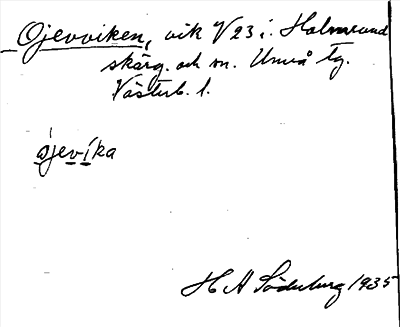 Ojevviken, vik V 23 i. Holmsund
skärg. och sn. Umeå tg.
Västerb. l.
ojevíka
H A Söderberg 1935